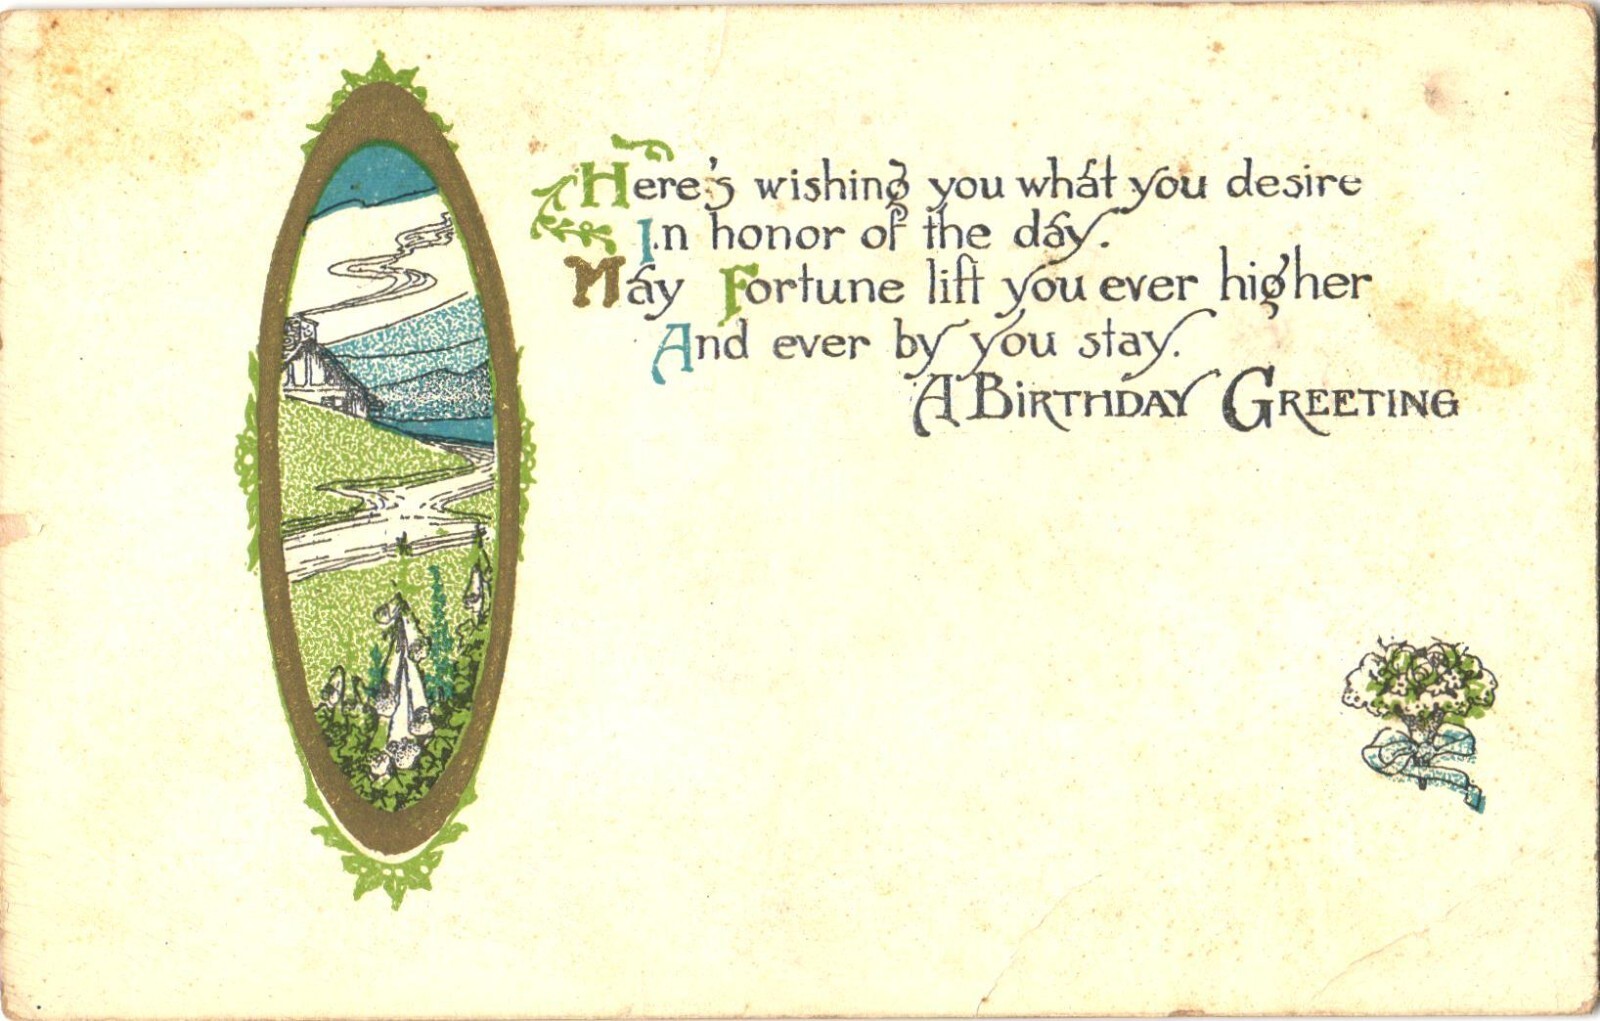 Here's wishing you what you desire
In honor of the day.
May Fortune lift you ever higher
And ever by you stay.
A BIRTHDAY GREETING